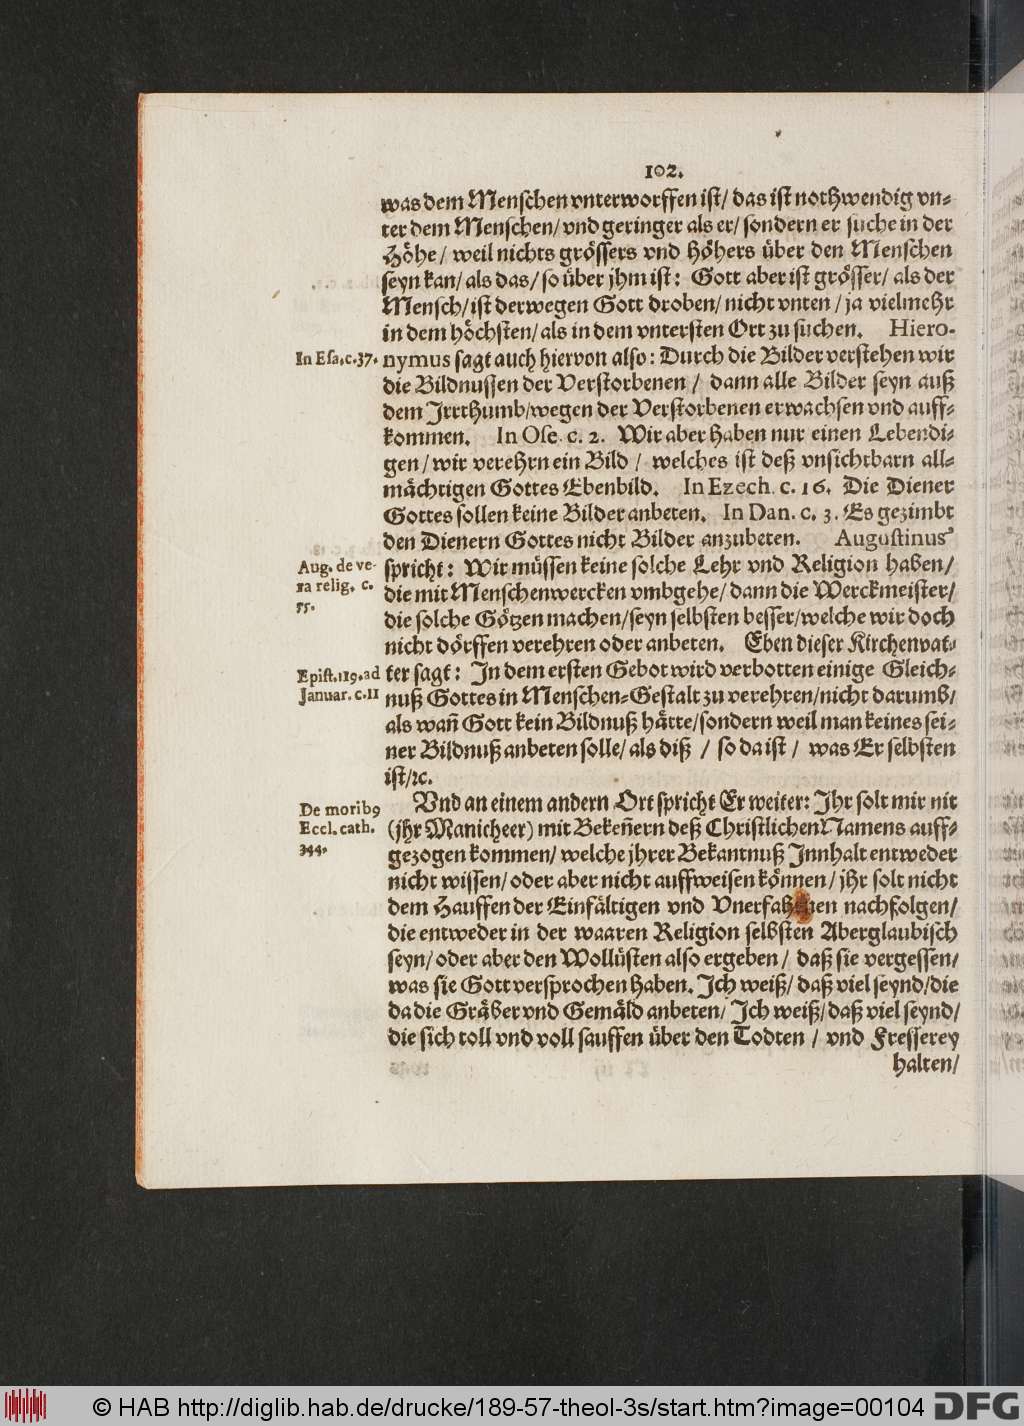 102.
was dem Menschen vnterworffen ist/ das ist nothwendig vn-
ter dem Menschen/ vnd geringer als er/ sondern er suche in der
Höhe/ weil nichts grössers vnd höhers über den Menschen
seyn kan/ als das/ so über jhm ist: Gott aber ist grösser/ als der
Mensch/ ist derwegen Gott droben/ nicht vnten/ ja vielmehr
in dem höchsten/ als in dem vntersten Ort zu suchen. Hiero-
In Esa. c. 37. nymus sagt auch hiervon also: Durch die Bilder verstehen wir
die Bildnussen der Verstorbenen/ dann alle Bilder seyn auß
dem Jrrthumb/ wegen der Verstorbenen erwachsen vnd auff-
kommen. In Ose. c. 2. Wir aber haben nur einen Lebendi-
gen/ wir verehrn ein Bild/ welches ist deß vnsichtbarn all-
mächtigen Gottes Ebenbild. In Ezech. c. 16. Die Diener
Gottes sollen keine Bilder anbeten. In Dan. c. 3. Es gezimbt
den Dienern Gottes nicht Bilder anzubeten. Augustinus
Aug. de ve- spricht: Wir müssen keine solche Lehr vnd Religion haben/
ra relig. c. die mit Menschenwercken vmbgehe/ dann die Werckmeister/
55. die solche Götzen machen/ seyn selbsten besser/ welche wir doch
nicht dörffen verehren oder anbeten. Eben dieser Kirchenvat-
Epist. 119. ad ter sagt: Jn dem ersten Gebot wird verbotten einige Gleich-
Januar. c. 11 nuß Gottes in Menschen-Gestalt zu verehren/ nicht darumb/
als wañ Gott kein Bildnuß hätte/ sondern weil man keines sei-
ner Bildnuß anbeten solle/ als diß/ so da ist/ was Er selbsten
ist/ ꝛc.
De moribꝰ Vnd an einem andern Ort spricht Er weiter: Jhr solt mir nit
Eccl. cath. (jhr Manicheer) mit Bekeñern deß Christlichen Namens auff-
344. gezogen kommen/ welche jhrer Bekantnuß Jnnhalt entweder
nicht wissen/ oder aber nicht auffweisen können/ jhr solt nicht
dem Hauffen der Einfältigen vnd Vnerfahrnen nachfolgen/
die entweder in der waaren Religion selbsten Aberglaubisch
seyn/ oder aber den Wollüsten also ergeben/ daß sie vergessen/
was sie Gott versprochen haben. Jch weiß/ daß viel seynd/ die
da die Gräber vnd Gemäld anbeten/ Jch weiß/ daß viel seynd/
die sich toll vnd voll sauffen über den Todten/ vnd Fresserey
halten/
© HAB http://diglib.hab.de/drucke/189-57-theol-3s/start.htm?image=00104
DFG